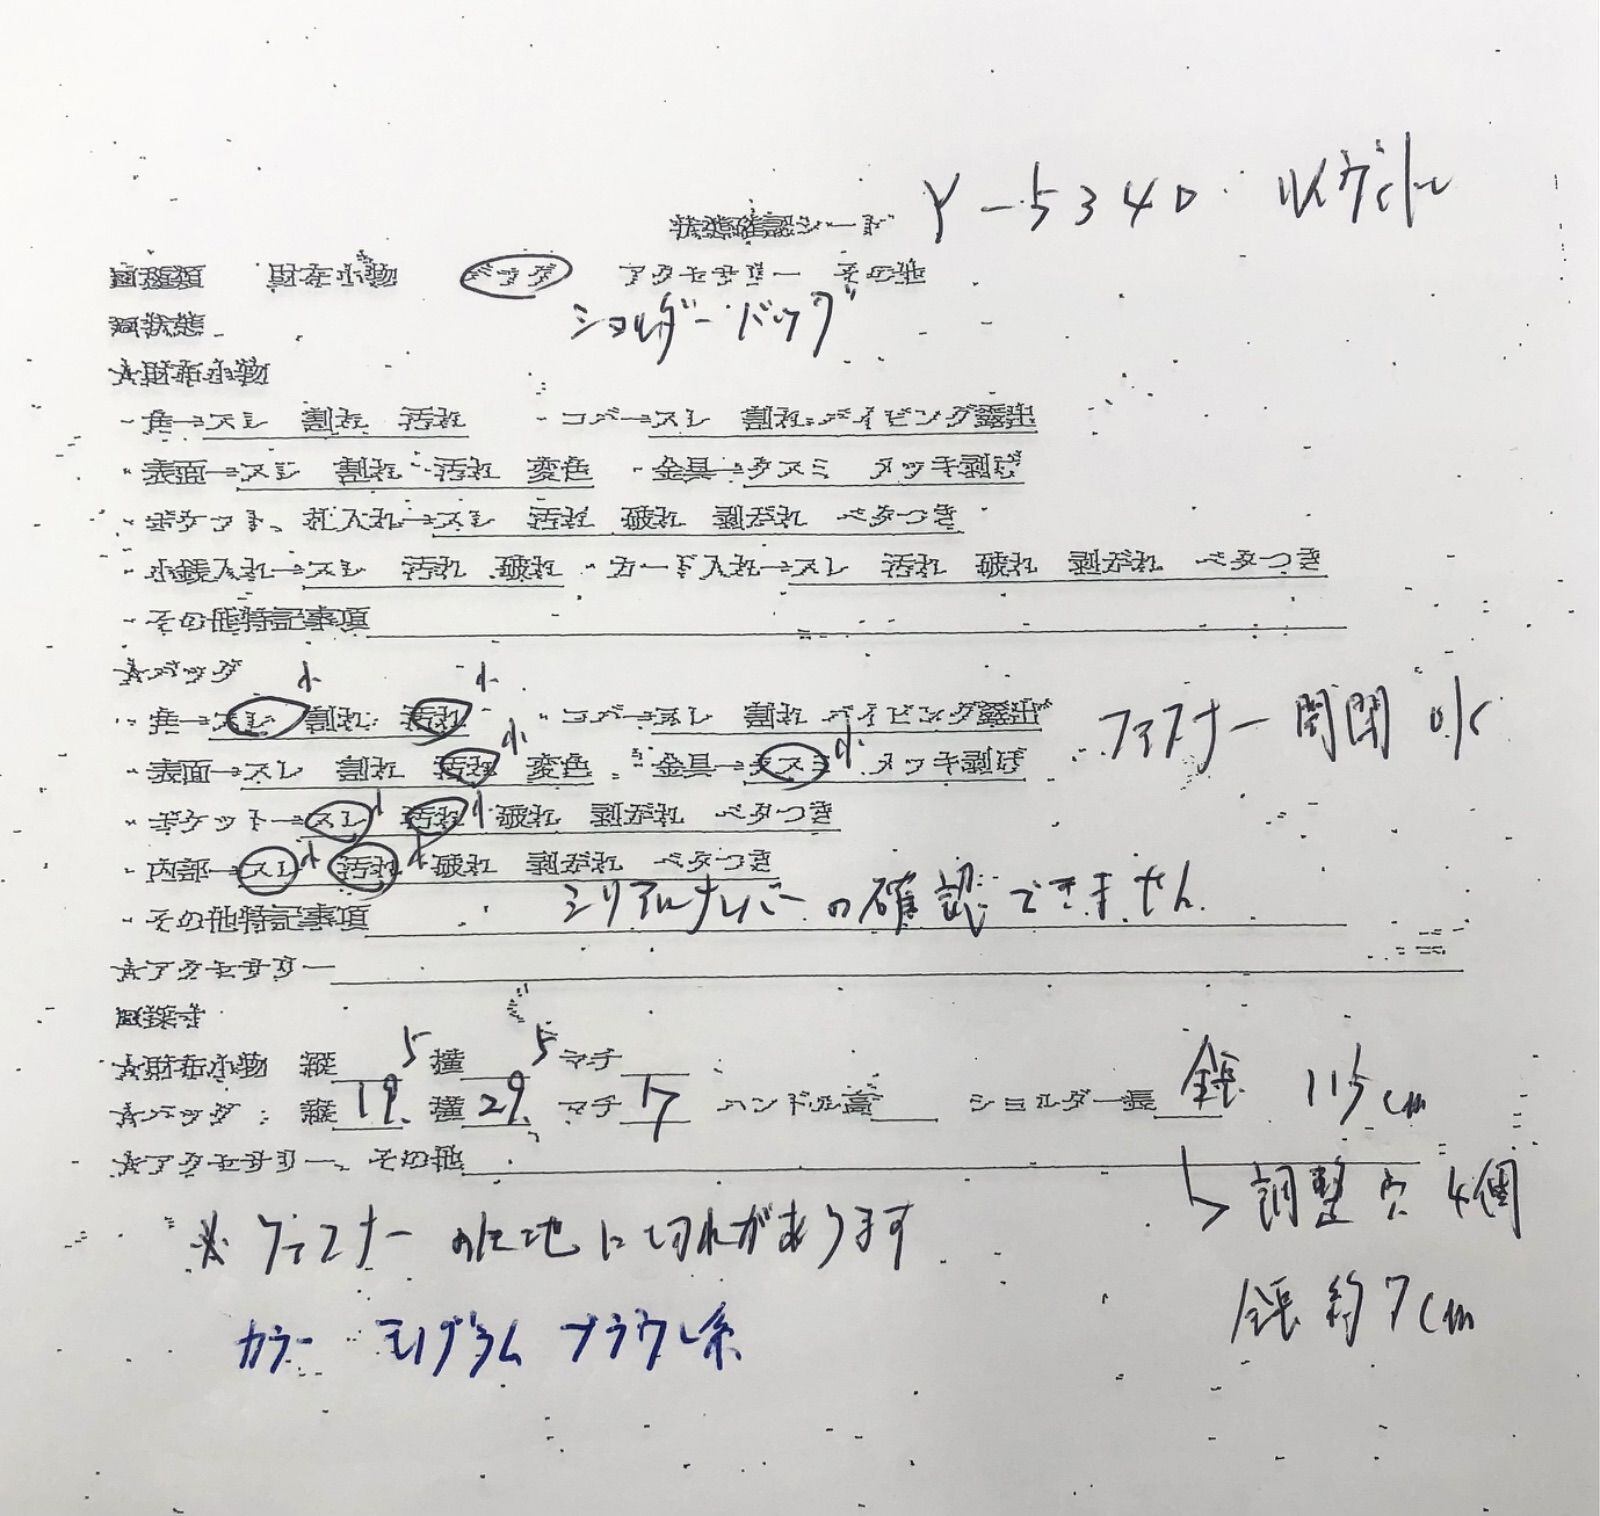 状態確認シート Y-5340 ルイヴィトン
■種類 財布小物 バッグ アクセサリー その他
ショルダーバッグ
■状態
★財布小物
・角→スレ 割れ 汚れ ・コバ→スレ 割れ パイピング露出
・表面→スレ 割れ 汚れ 変色 ・金具→クスミ メッキ剥げ
・ポケット、札入れ→スレ 汚れ 破れ 剥がれ ベタつき
・小銭入れ→スレ 汚れ 破れ ・カード入れ→スレ 汚れ 破れ 剥がれ ベタつき
・その他特記事項
★バッグ
・角→スレ小 割れ 汚れ小 ・コバ→スレ 割れ パイピング露出 ファスナー開閉OK
・表面→スレ 割れ 汚れ小 変色 ・金具→クスミ小 メッキ剥げ
・ポケット→スレ小 汚れ小 破れ 剥がれ ベタつき
・内部→スレ小 汚れ小 破れ 剥がれ ベタつき
・その他特記事項 シリアルナンバーの確認できません
★アクセサリー
■採寸
★財布小物 縦 横 マチ
★バッグ 縦19.5 横29.5 マチ17 ハンドル高 ショルダー長 全長 115cm
★アクセサリー、その他
↳調整穴 4個
※ファスナーの生地に切れがあります
全長約7cm
カラー モノグラム ブラウン系